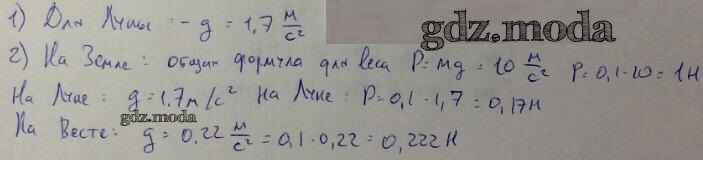 1) Для Луны : - g = 1,7 м/с²
gdz.moda
2) На Земле : общая формула для веса P = mg = 10 м/с² P = 0,1 · 10 = 1Н
На Луне : g = 1.7 м/с² На Луне : P = 0,1 · 1,7 = 0,17Н
gdz.moda
На Весте : g = 0.22 м/с² = 0,1 · 0,22 = 0,222 Н
gdz.moda